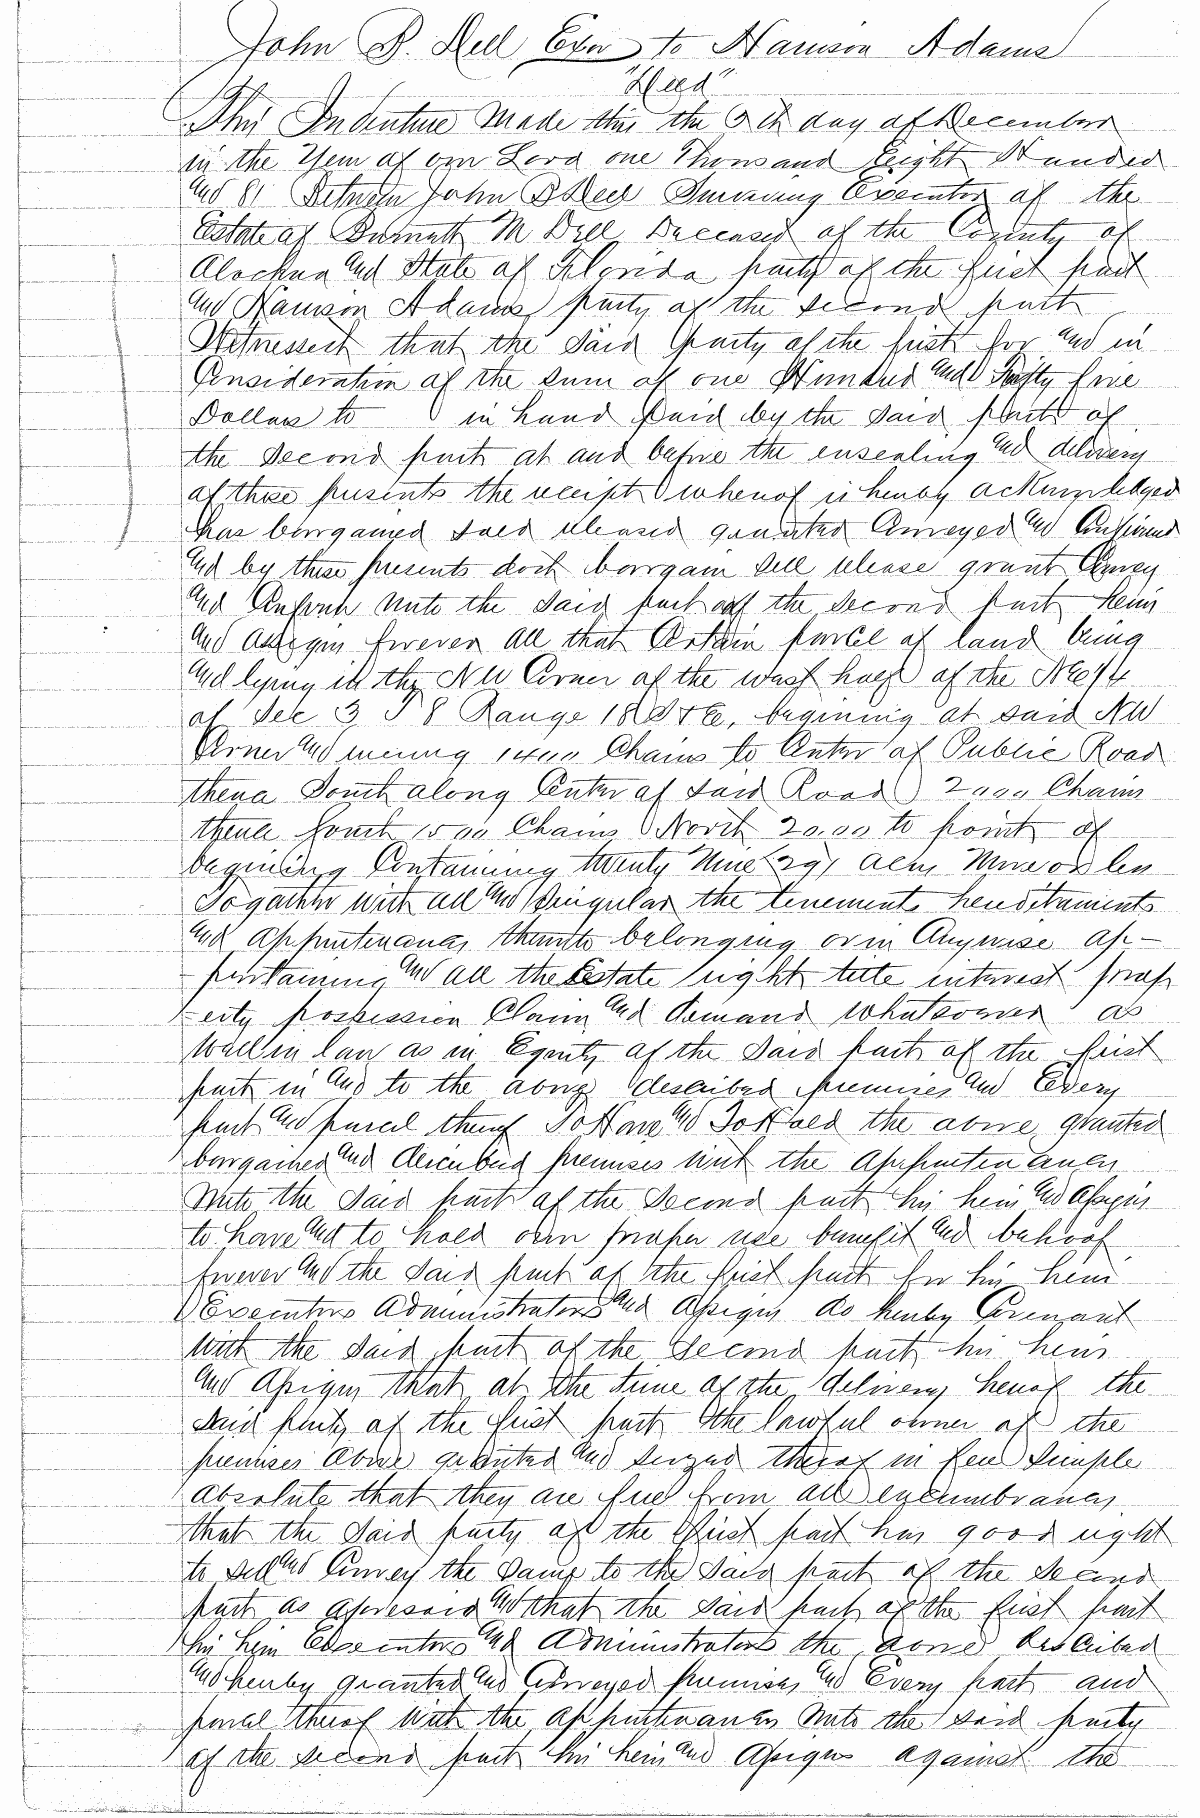 John B. Dell Exor to Harrison Adams
"Deed"
This Indenture Made this the 5th day of December
in the Year of our Lord one Thousand Eight Hundred
and 81 Between John B Dell Surviving Executor of the
Estate of Bennett M Dell Deceased of the County of
Alachua and State of Florida party of the first part
and Harrison Adams party of the second part
Witnesseth that the Said party of the first for and in
Consideration of the sum of one Hundred and fifty five
Dollars to in hand paid by the said part of
the second part at and before the ensealing and delivery
of these presents the receipt whereof is hereby acknowledged
has bargained sold released granted Conveyed and Confirmed
and by these presents doth bargain sell release grant Convey
and Confirm unto the said part of the second part heirs
and assigns forever all that Certain parcel of land being
and lying in the NW Corner of the west half of the NE 1/4
of Sec 3 T 8 Range 18 S & E, beginning at said NW
Corner and running 14.00 Chains to Center of Public Road
thence South along Center of said Road 20.00 Chains
thence South 15.00 Chains North 20.00 to point of
begining Containing twenty Nine (29) acres More or less
Togather with all and Singular the tenements hereditaments
and appurtenances thereto belonging or in Anywise ap-
pertaining and all the Estate right title interest prop
erty possession Claim and demand whatsoever as
well in law as in Equity of the said part of the first
part in and to the above described premises and Every
part and parcel thereof To Have and To Hold the above granted
bargained and described premises with the appurtenances
unto the said part of the second part his heirs and assigns
to have and to hold own proper use benefit and behoof
forever and the said part of the first part for his heirs
Executors Administrators and assigns do hereby Covenant
with the said part of the second part his heirs
and assigns that at the time of the delivery hereof the
said party of the first part the lawful owner of the
premises above granted and seized thereof in fee simple
absolute that they are free from all encumbrances
that the said party of the first part has good right
to sell and Convey the same to the said part of the second
part as aforesaid and that the said part of the first part
his heirs Executors and Administrators the above described
and hereby granted and Conveyed premises and Every part and
parcel thereof with the appurtenances unto the said party
of the second part his heirs and assigns against the